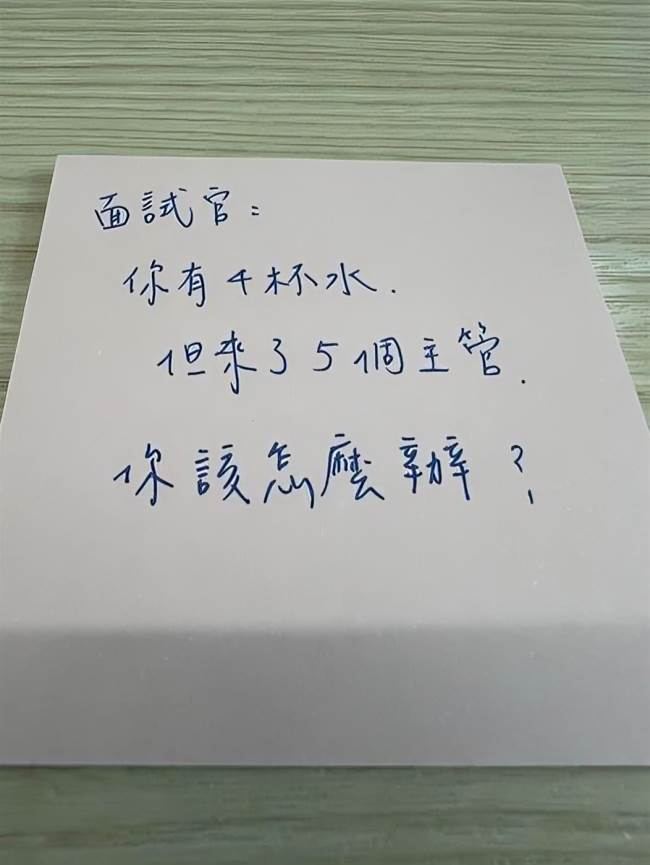 面試官：
你有4杯水.
但來了5個主管.
你該怎麼辦?